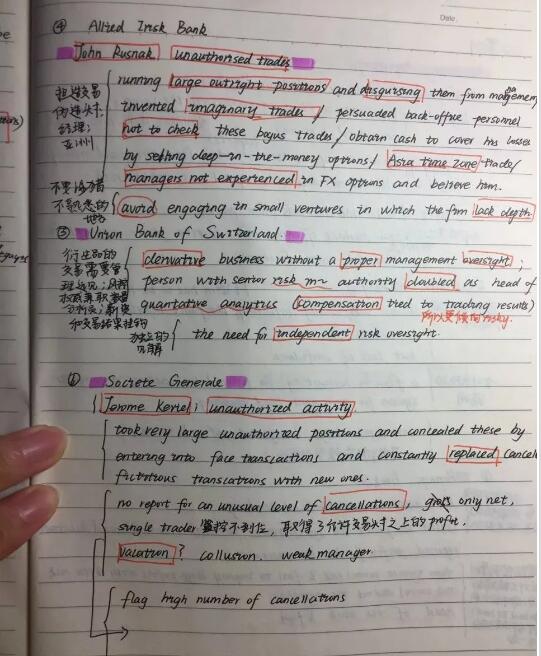 Date.
④ Allied Irisk Bank
John Rusnak, unauthorised trades
running large outright positions and disguising them from management
invented imaginary trades / persuaded back-office personnel
not to check these bogus trades / obtain cash to cover his losses
by selling deep-in-the-money options / Asia time zone trade/
managers not experienced in FX options and believe him.
捏造交易
伪造头寸
经理:
亚洲
avoid engaging in small ventures in which the firm lack depth
不要涉猎
不熟悉的
⑤ Union Bank of Switzerland.
derivative business without a proper management oversight;
person with senior risk authority doubled as head of
quantative analytics (compensation tied to trading results)
所以更倾向risky.
衍生品的
交易需要管
和交易结果挂钩
the need for independent risk oversight.
独立的
⑥ Societe Generale
Jerome Kerviel; unauthorized activity
took very large unauthorized positions and concealed these by
entering into face transactions and constantly replaced cancel
fictitious transcations with new ones.
no report for an unusual level of cancellations, gross only net,
single trader 监控不到位, 取得了允许交易头寸之上的profit.
vacation? collusion. weak manager
flag high number of cancellations